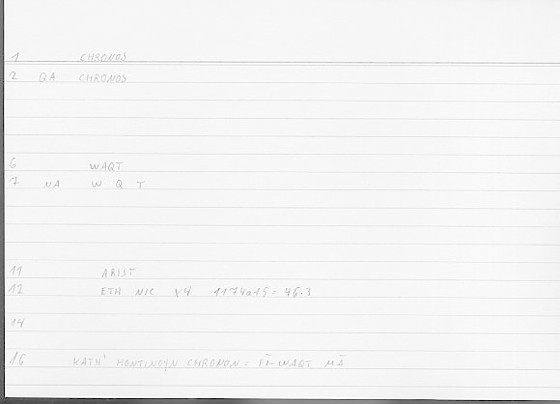 1 CHRONOS
2 QA CHRONOS
6 WAQT
7 NA W Q T
11 ARIST
12 ETH NIC 1174a15 = 46.3
14
16 KATH' HONTINOYN CHRONON = FĪ-WAQT MĀ